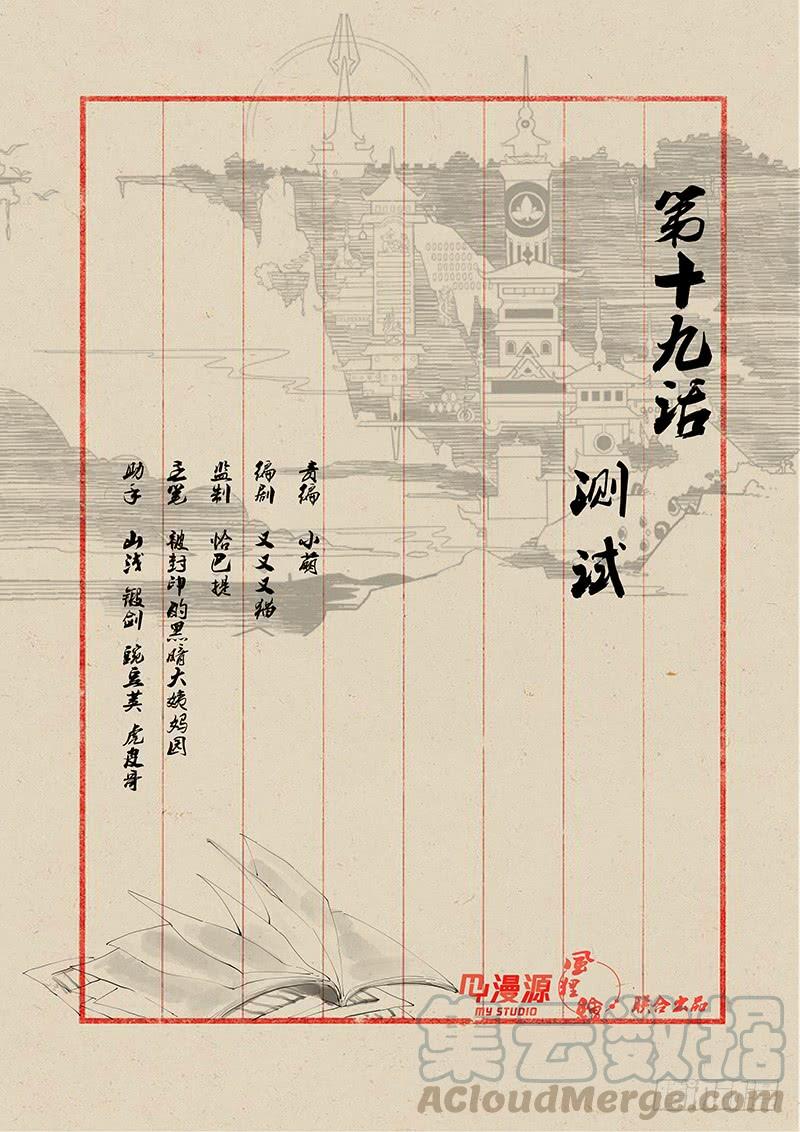 第十九话
测试
责编 小萌
编剧 又又又猫
监制 恰巴提
主笔 被封印的黑暗大姨妈园
助手 山浅 锻剑 豌豆荚 虎皮哥
漫源
MY STUDIO
联合出品
集云数据
ACloudMerge.com